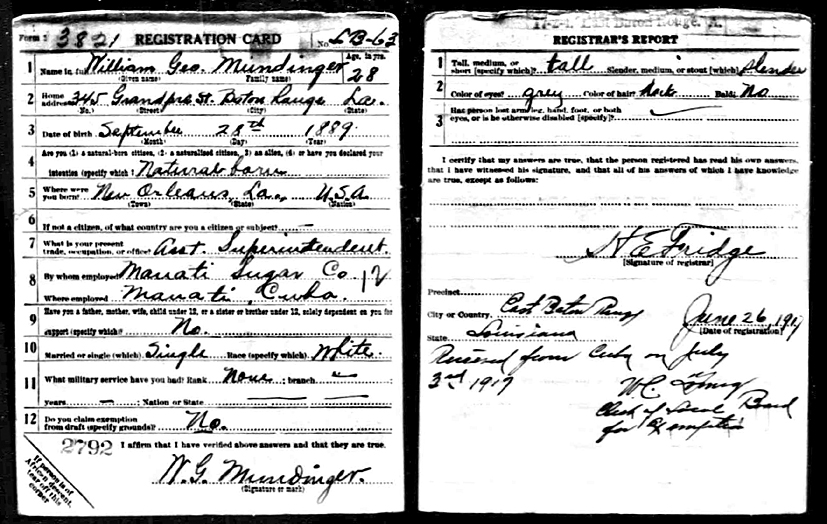 Form 1 3821 REGISTRATION CARD No. LB-63
1 Name in full William Geo. Mundinger Age, in yrs. 28
(Given name) (Family name)
2 Home address 345 Grandpre St. Baton Rouge La.
(No.) (Street) (City) (State)
3 Date of birth September 28th 1889
(Month) (Day) (Year)
4 Are you (1) a natural-born citizen, (2) a naturalized citizen, (3) an alien, (4) or have you declared your
intention (specify which)? Natural born
5 Where were you born? New Orleans, La., U.S.A.
(Town) (State) (Nation)
6 If not a citizen, of what country are you a citizen or subject? —
7 What is your present trade, occupation, or office? Asst. Superintendent.
8 By whom employed? Manati Sugar Co 12
Where employed Manati, Cuba.
9 Have you a father, mother, wife, child under 12, or a sister or brother under 12, solely dependent on you for
support (specify which)? No.
10 Married or single (which)? Single Race (specify which)? White.
11 What military service have you had? Rank None ; branch —
years — ; Nation or State —
12 Do you claim exemption from draft (specify grounds)? No.
2792 I affirm that I have verified above answers and that they are true.
W. G. Mundinger.
(Signature or mark)
If person is of
African descent,
tear off this
corner
17-2-1. East Baton Rouge, A.
REGISTRAR'S REPORT
1 Tall, medium, or short (specify which)? tall Slender, medium, or stout (which)? slender
2 Color of eyes? grey Color of hair? dark Bald? No
3 Has person lost arm, leg, hand, foot, or both
eyes, or is he otherwise disabled (specify)?
I certify that my answers are true, that the person registered has read his own answers,
that I have witnessed his signature, and that all of his answers of which I have knowledge
are true, except as follows:
H E Fridge
[Signature of registrar]
Precinct
City or Country. East Baton Rouge June 26, 1917
State Louisiana [Date of registration]
Received from Cuba on July
3rd 1917 W. C.
Clerk of Local Board
for Exemption